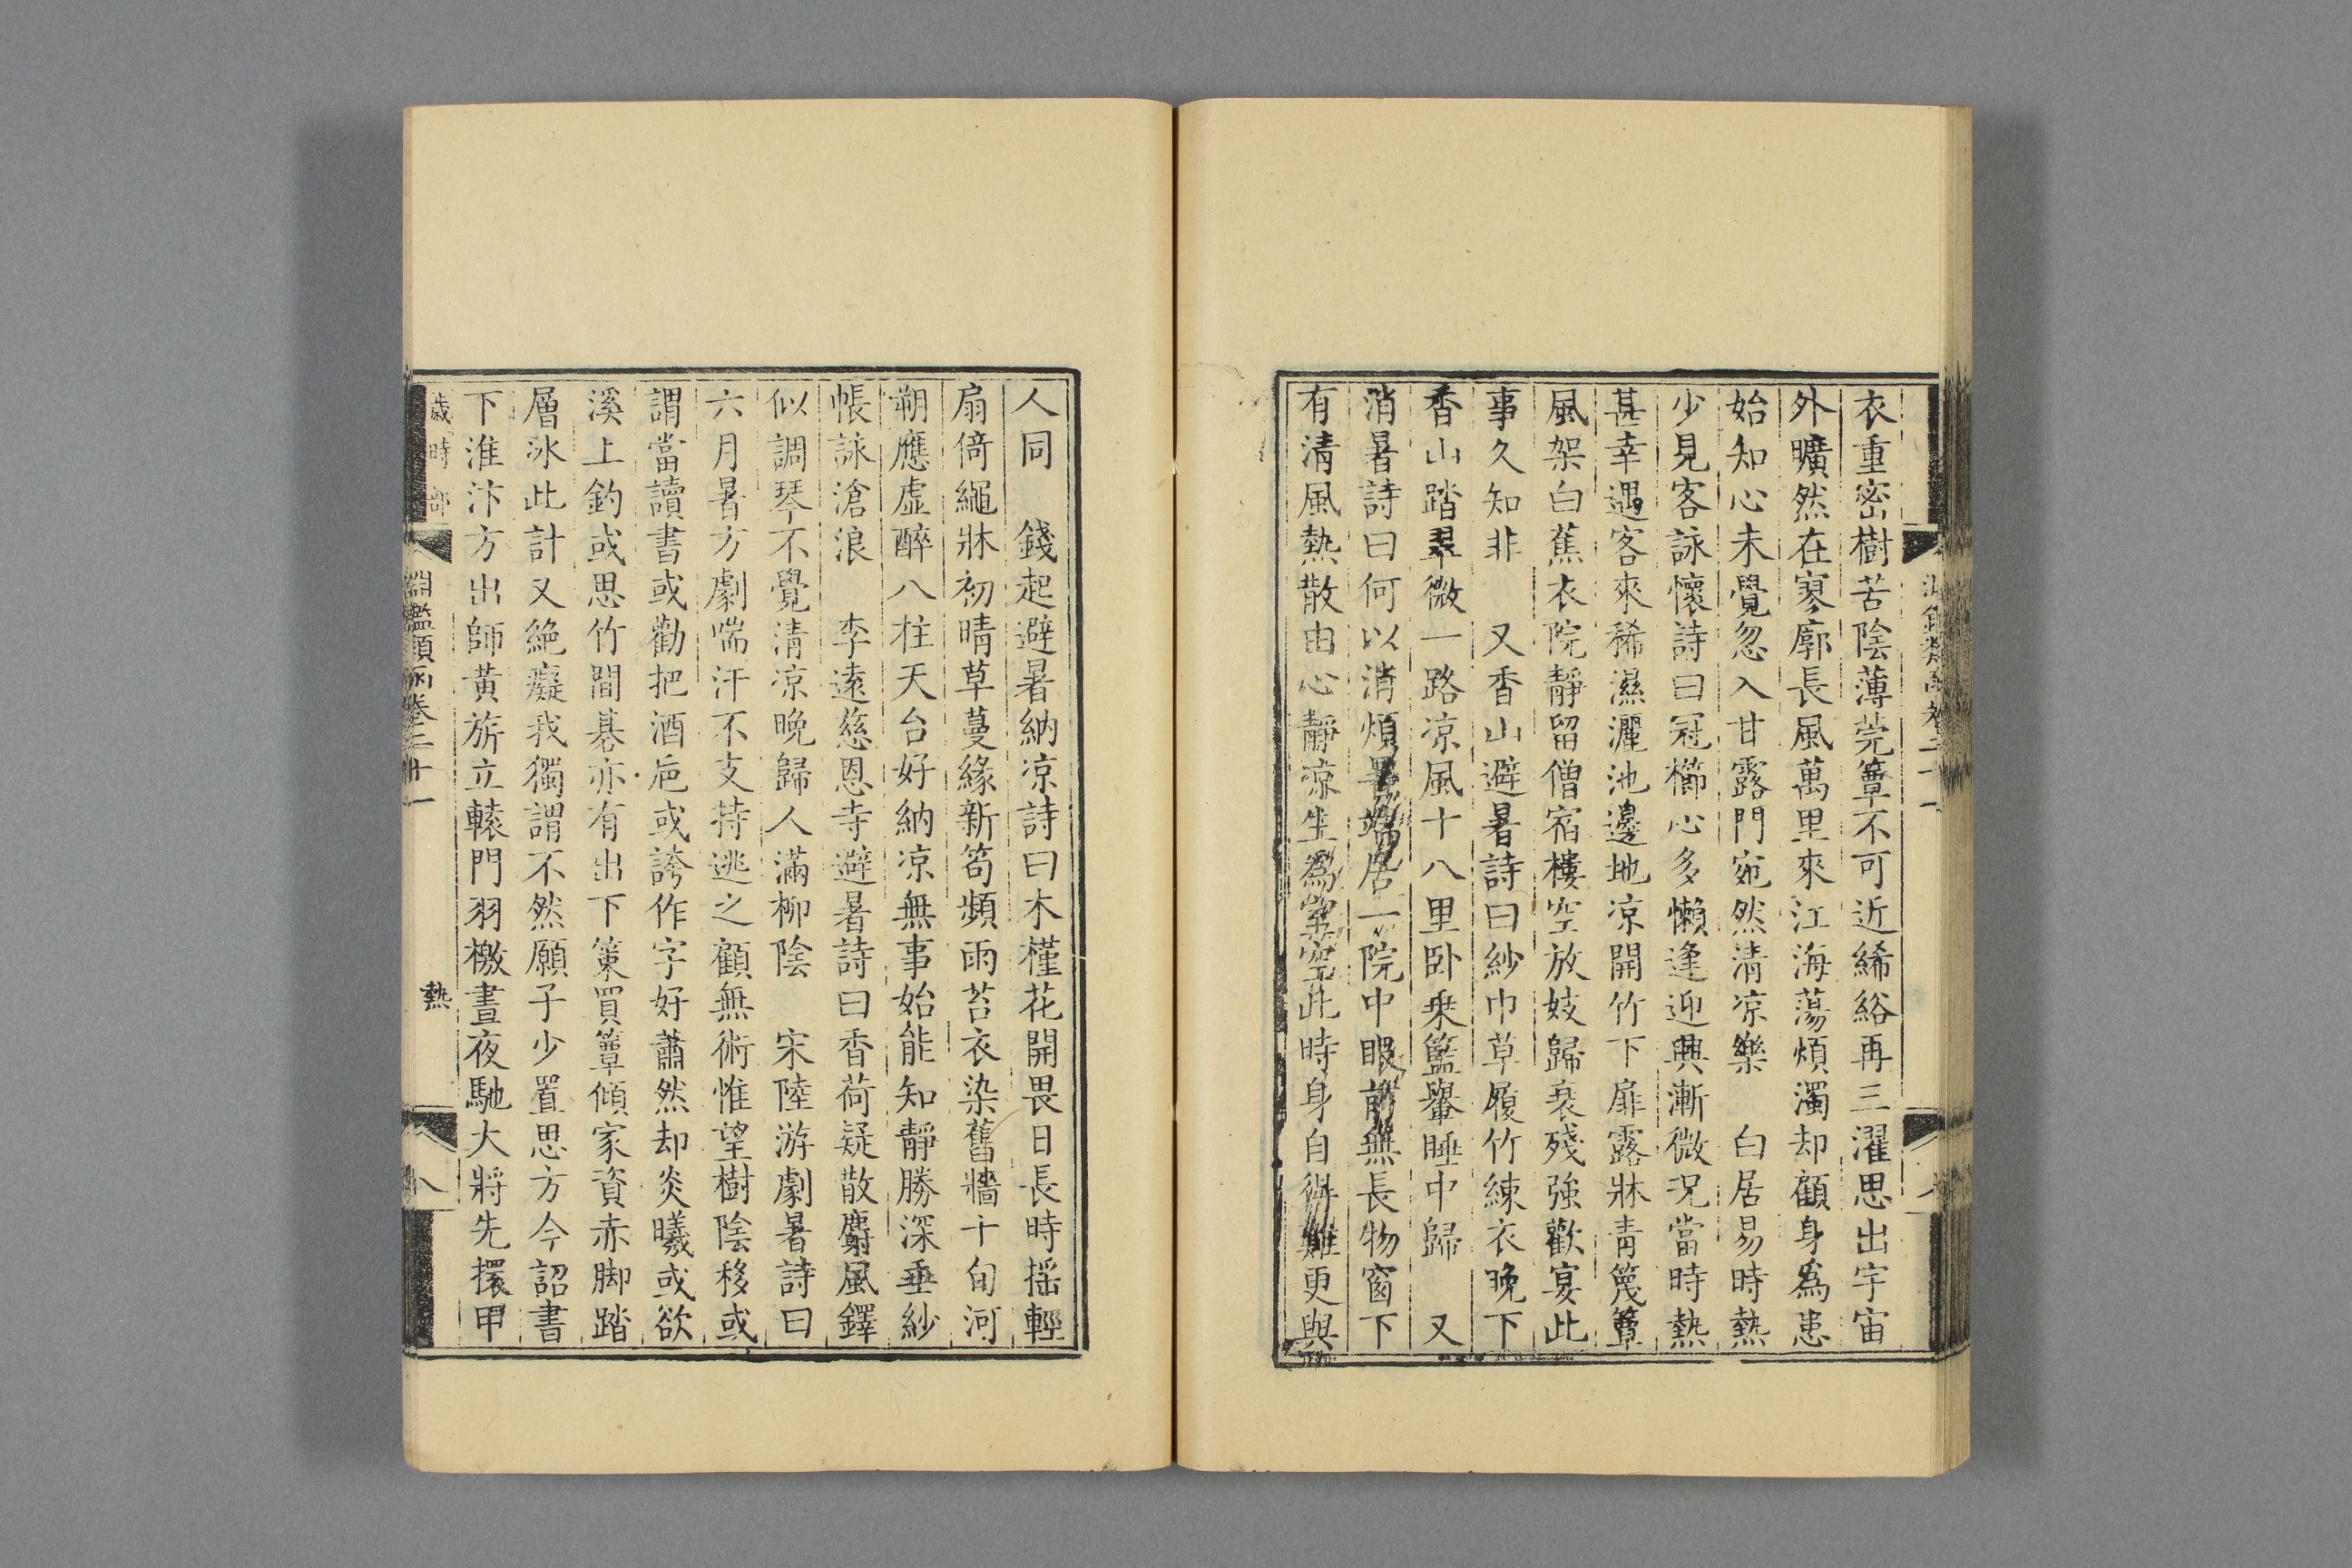 衣重密樹苦陰薄莞簟不可近絺綌再三濯思出宇宙
外曠然在寥廓長風萬里來江海蕩煩濁却顧身為患
始知心未覺忽入甘露門宛然清凉樂　白居易時熱
少見客詠懷詩曰冠櫛心多懶逢迎興漸微况當時熱
甚幸遇客來稀濕灑池邊地凉開竹下扉露牀青篾簟
風架白蕉衣院靜留僧宿樓空放妓歸衰殘強歡宴此
事久知非　又香山避暑詩曰紗巾草履竹練衣晚下
香山踏翠微一路凉風十八里卧乗籃轝睡中歸　又
消暑詩曰何以消煩暑端居一院中眼前無長物窗下
有清風熱散由心靜凉生為室空此時身自得難更與
人同　錢起避暑納凉詩曰木槿花開畏日長時揺輕
扇倚繩牀初晴草蔓緣新筍頻雨苔衣染舊牆十旬河
朔應虛醉八柱天台好納凉無事始能知靜勝深垂紗
帳詠滄浪　李遠慈恩寺避暑詩曰香荷疑散麝風鐸
似調琴不覺清凉晚歸人滿柳陰　宋陸游劇暑詩曰
六月暑方劇喘汗不支持逃之顧無術惟望樹陰移或
謂當讀書或勸把酒巵或誇作字好蕭然却炎曦或欲
溪上釣或思竹間棊亦有出下策買簟傾家資赤脚踏
層冰此計又絶癡我獨謂不然願子少置思方今詔書
下淮汴方出師黃旂立轅門羽檄晝夜馳大將先擐甲
歲時部　淵鑑類函卷二十一　熱　八